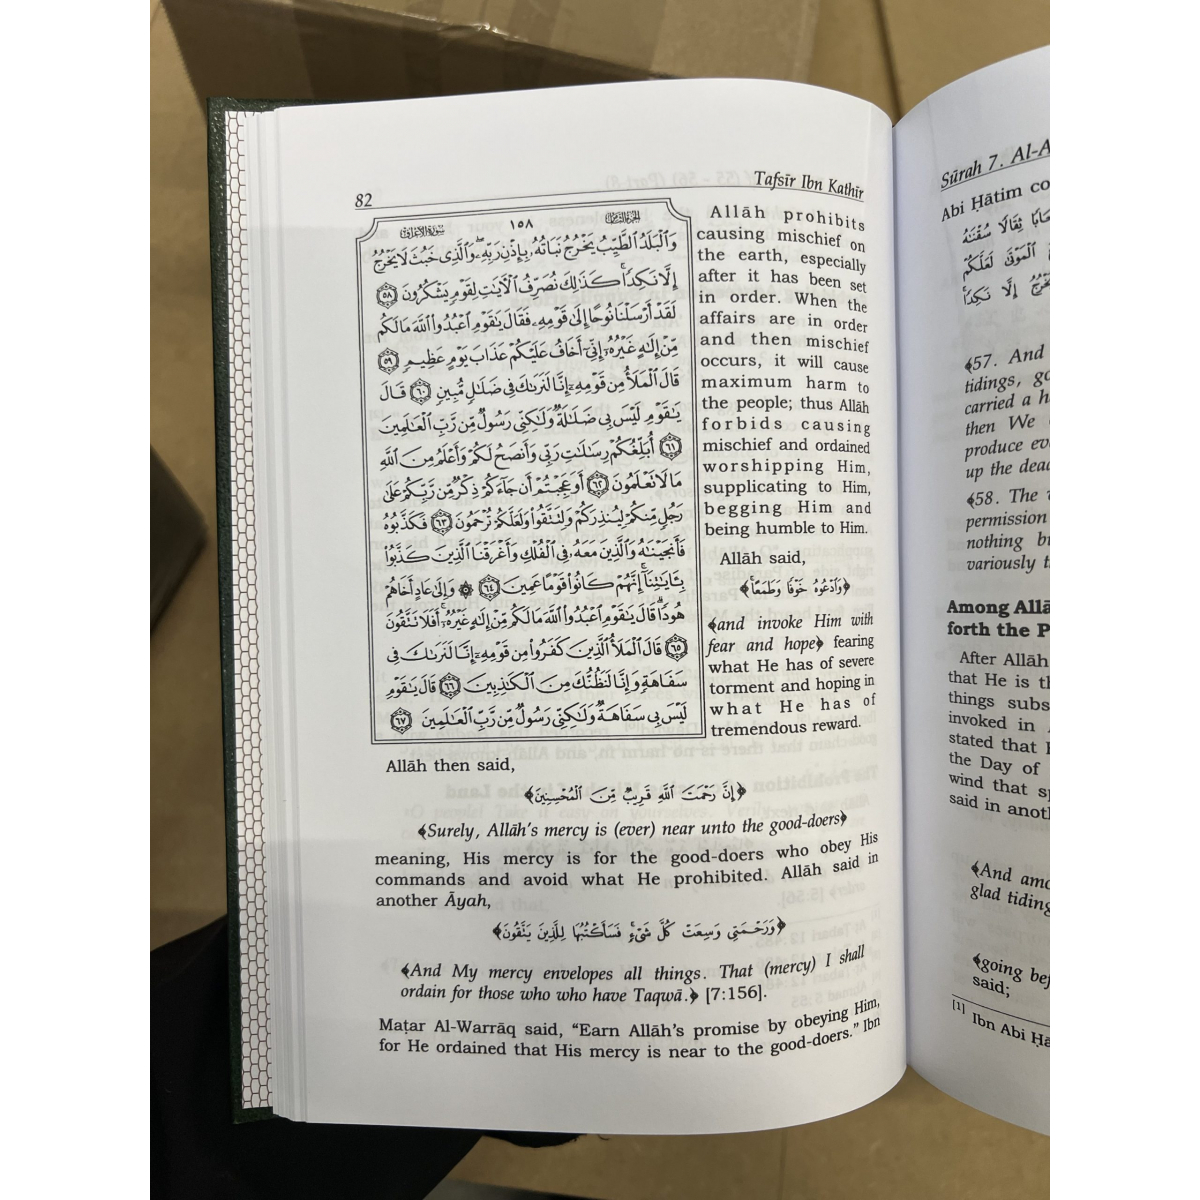 82
Tafsīr Ibn Kathīr
سورة الأعراف
١٥٨
الجزء الثامن
وَٱلْبَلَدُ ٱلطَّيِّبُ يَخْرُجُ نَبَاتُهُۥ بِإِذْنِ رَبِّهِۦ وَٱلَّذِى خَبُثَ لَا يَخْرُجُ
إِلَّا نَكِدًا ۚ كَذَٰلِكَ نُصَرِّفُ ٱلْـَٔايَٰتِ لِقَوْمٍ يَشْكُرُونَ ٥٨
لَقَدْ أَرْسَلْنَا نُوحًا إِلَىٰ قَوْمِهِۦ فَقَالَ يَٰقَوْمِ ٱعْبُدُوا۟ ٱللَّهَ مَا لَكُم
مِّنْ إِلَٰهٍ غَيْرُهُۥٓ إِنِّىٓ أَخَافُ عَلَيْكُمْ عَذَابَ يَوْمٍ عَظِيمٍ ٥٩
قَالَ ٱلْمَلَأُ مِن قَوْمِهِۦٓ إِنَّا لَنَرَىٰكَ فِى ضَلَٰلٍ مُّبِينٍ ٦٠ قَالَ
يَٰقَوْمِ لَيْسَ بِى ضَلَٰلَةٌ وَلَٰكِنِّى رَسُولٌ مِّن رَّبِّ ٱلْعَٰلَمِينَ
٦١ أُبَلِّغُكُمْ رِسَٰلَٰتِ رَبِّى وَأَنصَحُ لَكُمْ وَأَعْلَمُ مِنَ ٱللَّهِ
مَا لَا تَعْلَمُونَ ٦٢ أَوَعَجِبْتُمْ أَن جَآءَكُمْ ذِكْرٌ مِّن رَّبِّكُمْ عَلَىٰ
رَجُلٍ مِّنكُمْ لِيُنذِرَكُمْ وَلِتَتَّقُوا۟ وَلَعَلَّكُمْ تُرْحَمُونَ ٦٣ فَكَذَّبُوهُ
فَأَنجَيْنَٰهُ وَٱلَّذِينَ مَعَهُۥ فِى ٱلْفُلْكِ وَأَغْرَقْنَا ٱلَّذِينَ كَذَّبُوا۟
بِـَٔايَٰتِنَآ ۚ إِنَّهُمْ كَانُوا۟ قَوْمًا عَمِينَ ٦٤ ۞ وَإِلَىٰ عَادٍ أَخَاهُمْ
هُودًا ۗ قَالَ يَٰقَوْمِ ٱعْبُدُوا۟ ٱللَّهَ مَا لَكُم مِّنْ إِلَٰهٍ غَيْرُهُۥٓ ۚ أَفَلَا تَتَّقُونَ
٦٥ قَالَ ٱلْمَلَأُ ٱلَّذِينَ كَفَرُوا۟ مِن قَوْمِهِۦٓ إِنَّا لَنَرَىٰكَ فِى
سَفَاهَةٍ وَإِنَّا لَنَظُنُّكَ مِنَ ٱلْكَٰذِبِينَ ٦٦ قَالَ يَٰقَوْمِ
لَيْسَ بِى سَفَاهَةٌ وَلَٰكِنِّى رَسُولٌ مِّن رَّبِّ ٱلْعَٰلَمِينَ ٦٧
Allāh prohibits
causing mischief on
the earth, especially
after it has been set
in order. When the
affairs are in order
and then mischief
occurs, it will cause
maximum harm to
the people; thus Allāh
forbids causing
mischief and ordained
worshipping Him,
supplicating to Him,
begging Him and
being humble to Him.
Allāh said,
﴿وَٱدْعُوهُ خَوْفًا وَطَمَعًا ۚ﴾
﴾and invoke Him with
fear and hope﴿ fearing
what He has of severe
torment and hoping in
what He has of
tremendous reward.
Allāh then said,
﴿إِنَّ رَحْمَتَ ٱللَّهِ قَرِيبٌ مِّنَ ٱلْمُحْسِنِينَ﴾
﴾Surely, Allāh's mercy is (ever) near unto the good-doers﴿
meaning, His mercy is for the good-doers who obey His
commands and avoid what He prohibited. Allāh said in
another Āyah,
﴿وَرَحْمَتِى وَسِعَتْ كُلَّ شَىْءٍ ۚ فَسَأَكْتُبُهَا لِلَّذِينَ يَتَّقُونَ﴾
﴾And My mercy envelopes all things. That (mercy) I shall
ordain for those who who have Taqwā.﴿ [7:156].
Maṭar Al-Warrāq said, "Earn Allāh's promise by obeying Him,
for He ordained that His mercy is near to the good-doers." Ibn
Sūrah 7. Al-A
Abi Ḥātim co
سَحَابًا ثِقَالًا سُقْنَٰهُ
ٱلْمَوْتَىٰ لَعَلَّكُمْ
يَخْرُجُ إِلَّا نَكِدًا ۚ
﴾57. And
tidings, go
carried a h
then We
produce ev
up the dead
﴾58. The
permission
nothing b
variously
Among Allā
forth the P
After Allāh
that He is th
things subs
invoked in
stated that
the Day of
wind that sp
said in anoth
﴾And amo
glad tiding
﴾going bef
said;
[1] Ibn Abi Ḥā